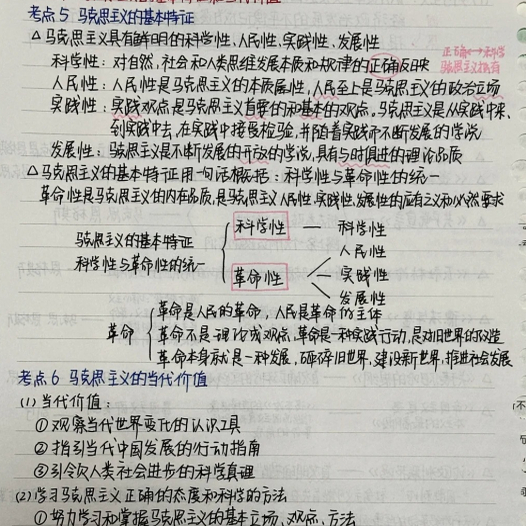 考点5 马克思主义的基本特征
△马克思主义具有鲜明的科学性、人民性、实践性、发展性
科学性：对自然、社会和人类思维发展本质和规律的正确反映
正确→科学
人民性：人民性是马克思主义的本质属性，人民至上是马克思主义的政治立场
实践性：实践观点是马克思主义首要的和基本的观点。马克思主义是从实践中来，
到实践中去，在实践中接受检验，并随着实践而不断发展的学说
发展性：马克思主义是不断发展的开放的学说，具有与时俱进的理论品质
△马克思主义的基本特征用一句话概括：科学性与革命性的统一
革命性是马克思主义的内在品质，是马克思主义人民性、实践性、发展性的应有之义和必然要求
马克思主义的基本特征
科学性与革命性的统一
科学性 — 科学性
革命性
人民性
实践性
发展性
革命
革命是人民的革命，人民是革命的主体
革命不是理论或观点，革命是一种实践行动，是对旧世界的改造
革命本身就是一种发展，砸碎旧世界，建设新世界，推进社会发展
考点6 马克思主义的当代价值
(1)当代价值：
①观察当代世界变化的认识工具
②指引当代中国发展的行动指南
③引领人类社会进步的科学真理
(2)学习马克思主义正确的态度和科学的方法
①努力学习和掌握马克思主义的基本立场、观点、方法